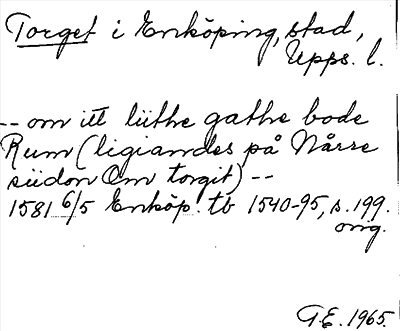 Torget i Enköping, stad,
Upps. l.
-- om itt liithe gathe bode
Rum (ligiandes på Nårre
siidon Om torgit) --
1581 6/5 Enköp. tb 1540-95, s. 199.
orig.
G.E. 1965.